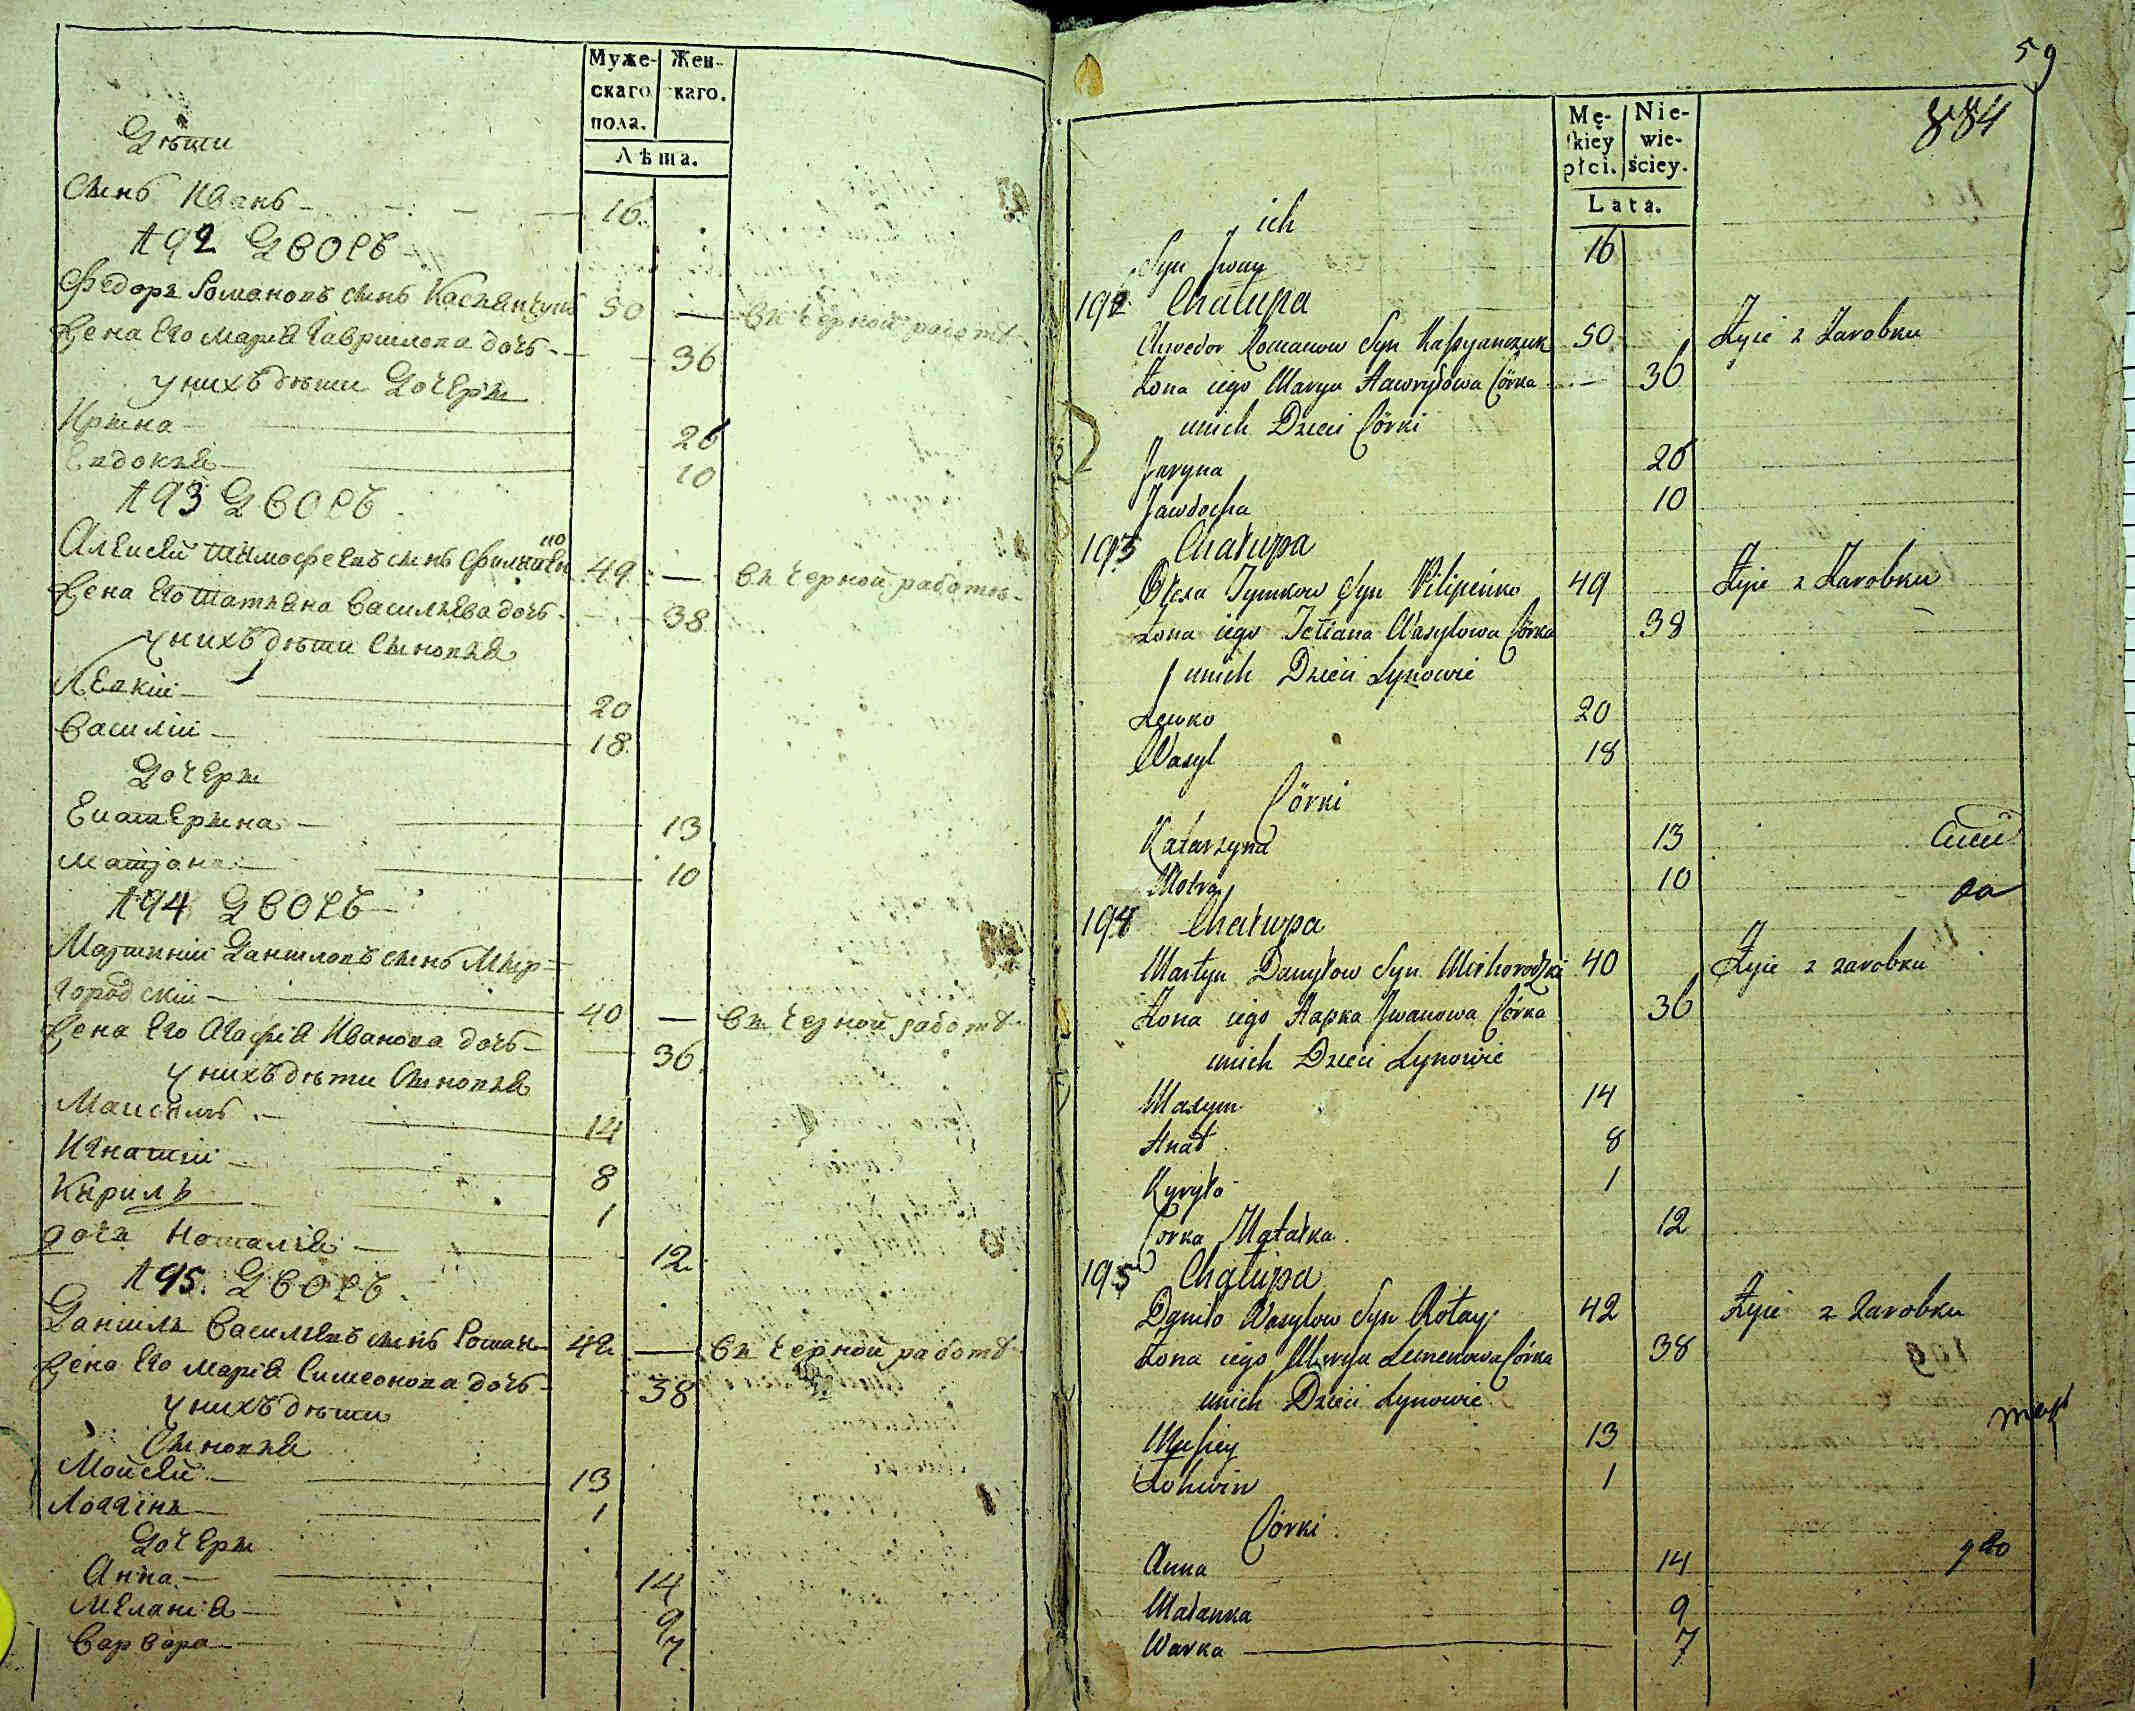 Муже-
скаго
пола.
Жен-
каго.
Лѣта.
Дѣти
Сынъ Иванъ 16
192 Дворъ
Федоръ Романовъ сынъ Касянчукъ 50 — въ черной работѣ
Жена Его Марія Гаврилова дочь 36
у нихъ дѣти Дочери
Ирина 26
Евдокия 10
193 Дворъ
Алексѣй Тимофеевъ сынъ Филипенко 49 — въ черной работѣ
Жена Его Татьяна Васильева дочь 38
у нихъ дѣти Сыновья
Левкій 20
Василій 18
Дочери
Екатерина 13
Матрона 10
194 Дворъ
Мартиній Даниловъ сынъ Мир-
городскій 40 — въ черной работѣ
Жена Его Агафія Иванова дочь 36
у нихъ дѣти Сыновья
Максимъ 14
Игнатій 8
Кирилъ 1
дочь Наталія 12
195 Дворъ
Данилъ Васильевъ сынъ Ротай 42 — въ черной работѣ
Жена Его Марія Симеонова дочь 38
у нихъ дѣти
Сыновья
Мойсей 13
Логгинъ 1
Дочери
Анна 14
Меланія 9
Варвара 7
59
884
Mę-
skiey
płci.
Nie-
wie-
ściey.
Lata.
ich
Syn Jwan 16
192 Chałupa
Chwedor Romanow Syn Kasyanczuk 50 Żyie z Zarobku
Żona iego Marya Hawryłowa Córka 36
u nich Dzieci Córki
Jaryna 26
Jawdocha 10
193 Chałupa
Ołexa Tymkow Syn Pilipenko 49 Żyie z Zarobku
Żona iego Tetiana Wasylowa Córka 38
u nich Dzieci Synowie
Lewko 20
Wasyl 18
Córki
Katarzyna 13
Motra 10
194 Chałupa
Martyn Danyłow Syn Mirhorodzki 40 Żyie z zarobku
Żona iego Hapka Jwanowa Córka 36
u nich Dzieci Synowie
Maxym 14
Hnat 8
Kyryło 1
Córka Natałka 12
195 Chałupa
Danyło Wasylow Syn Rotay 42 Żyie z Zarobku
Żona iego Marya Semenowa Córka 38
u nich Dzieci Synowie
Musiey 13
Łohwin 1
Córki
Anna 14
Małanka 9
Warka 7